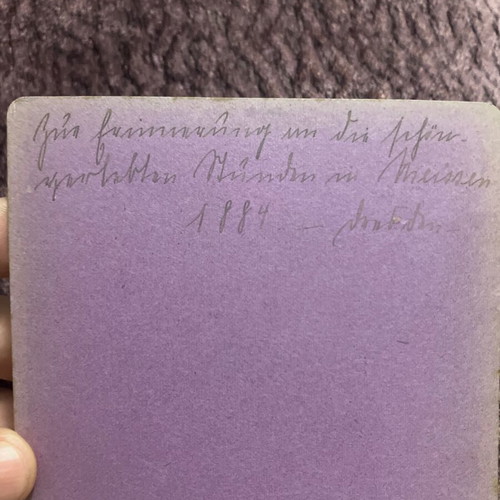 Zur Erinnerung an die schön-
verlebten Stunden in Meissen
1884 – Dresden